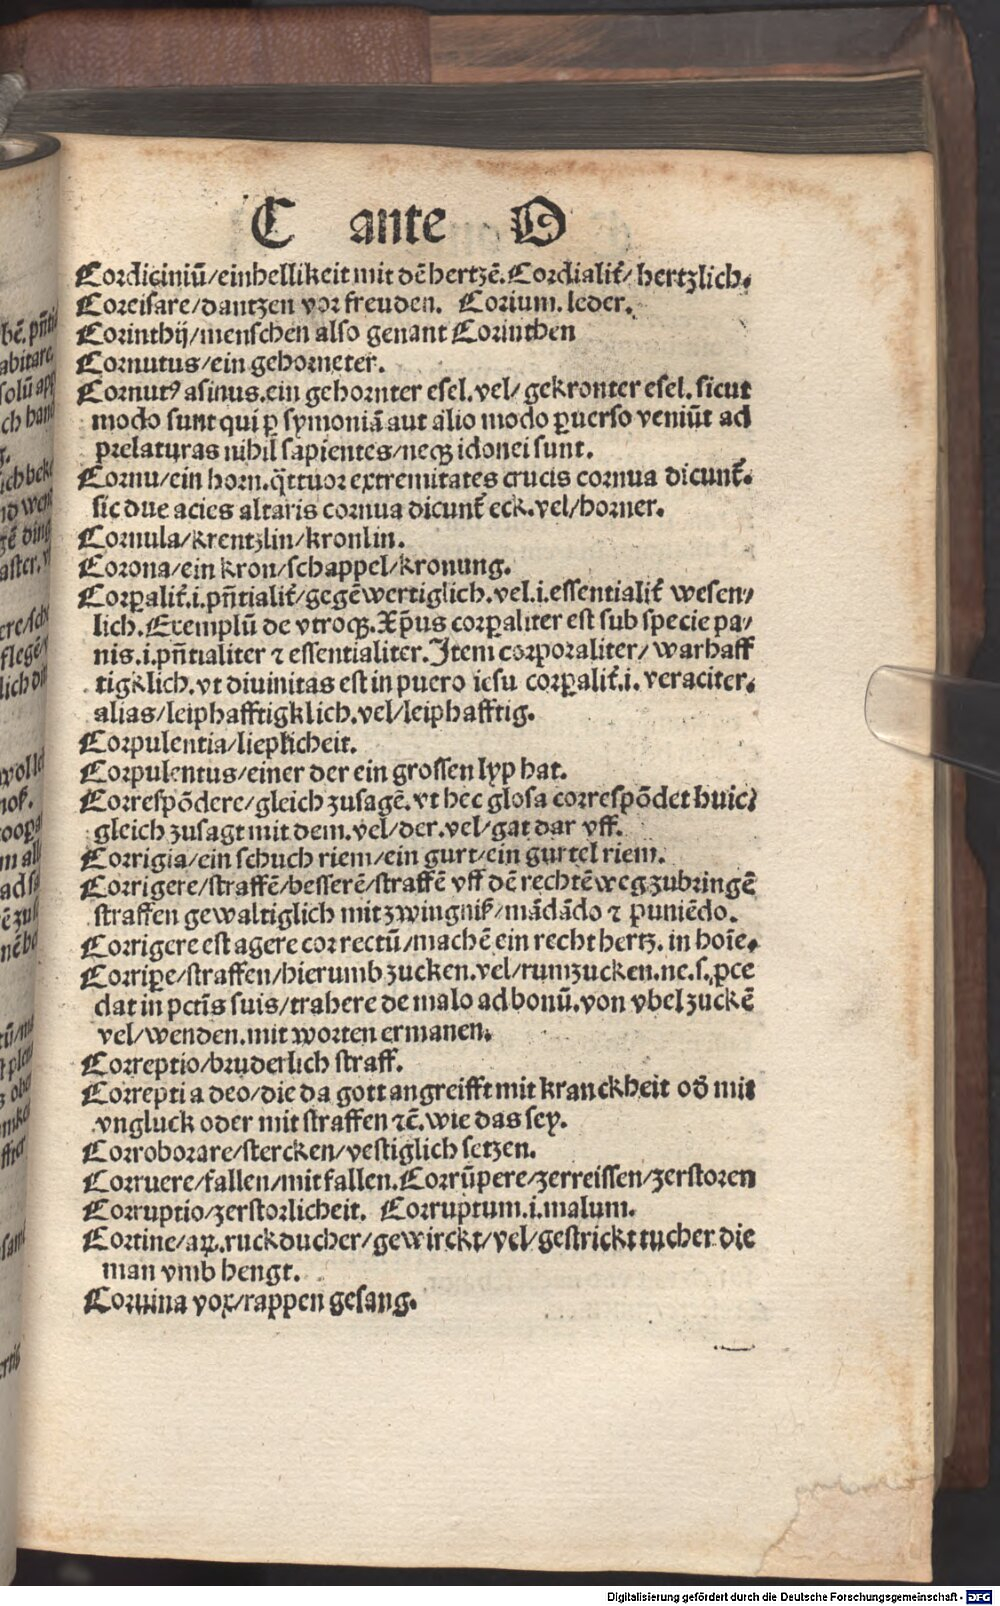 C ante O
Cordiciniū/einhellikeit mit dē hertzē. Cordialit̄/ hertzlich.
Coreisare/dantzen vor freuden. Corium. leder.
Corinthij/menschen also genant Corinthen
Cornutus/ein gehorneter.
Cornutꝰ asinus. ein gehornter esel. vel/ gekronter esel. sicut
modo sunt qui ꝑ symoniā aut alio modo ꝑuerso veniūt ad
prelaturas nihil sapientes/neqꝫ idonei sunt.
Cornu/ein horn. q̈ttuor extremitates crucis cornua dicunt̄.
sic due acies altaris cornua dicunt̄ eck. vel/horner.
Cornula/krentzlin/kronlin.
Corona/ein kron/schappel/kronung.
Corꝑalit̄. i. pn̄tialit̄/gegēwertiglich. vel. i. essentialit̄ wesen/
lich. Exemplū de vtroqꝫ. Xp̄us corꝑaliter est sub specie pa/
nis. i. pn̄tialiter ⁊ essentialiter. Item corporaliter/ warhaff
tigklich. vt diuinitas est in puero iesu corꝑalit̄. i. veraciter.
alias/leiphafftigklich. vel/leiphafftig.
Corpulentia/lieplicheit.
Corpulentus/einer der ein grossen lyp hat.
Correspōdere/gleich zusagē. vt hec glosa correspōdet huic/
gleich zusagt mit dem. vel/der. vel/gat dar vff.
Corrigia/ein schuch riem/ein gurt/ein gurtel riem.
Corrigere/straffē/besserē/straffē vff dē rechtē weg zubringē
straffen gewaltiglich mit zwingniß/mādādo ⁊ puniēdo.
Corrigere est agere cor rectū/machē ein recht hertz. in hoīe.
Corriꝑe/straffen/hierumb zucken. vel/rumzucken. ne. s. ꝓce
dat in pctīs suis/trahere de malo ad bonū. von vbel zuckē
vel/wenden. mit worten ermanen.
Correptio/bruderlich straff.
Correpti a deo/die da gott angreifft mit kranckheit od̄ mit
vngluck oder mit straffen ⁊c̄. wie das sey.
Corroborare/stercken/vestiglich setzen.
Corruere/fallen/mit fallen. Corrūpere/zerreissen/zerstoren
Corruptio/zerstorlicheit. Corruptum. i. malum.
Cortine/aꝝ. ruckducher/gewirckt/vel/gestrickt tucher die
man vmb hengt.
Coruina vox/rappen gesang.
Digitalisierung gefördert durch die Deutsche Forschungsgemeinschaft - DFG